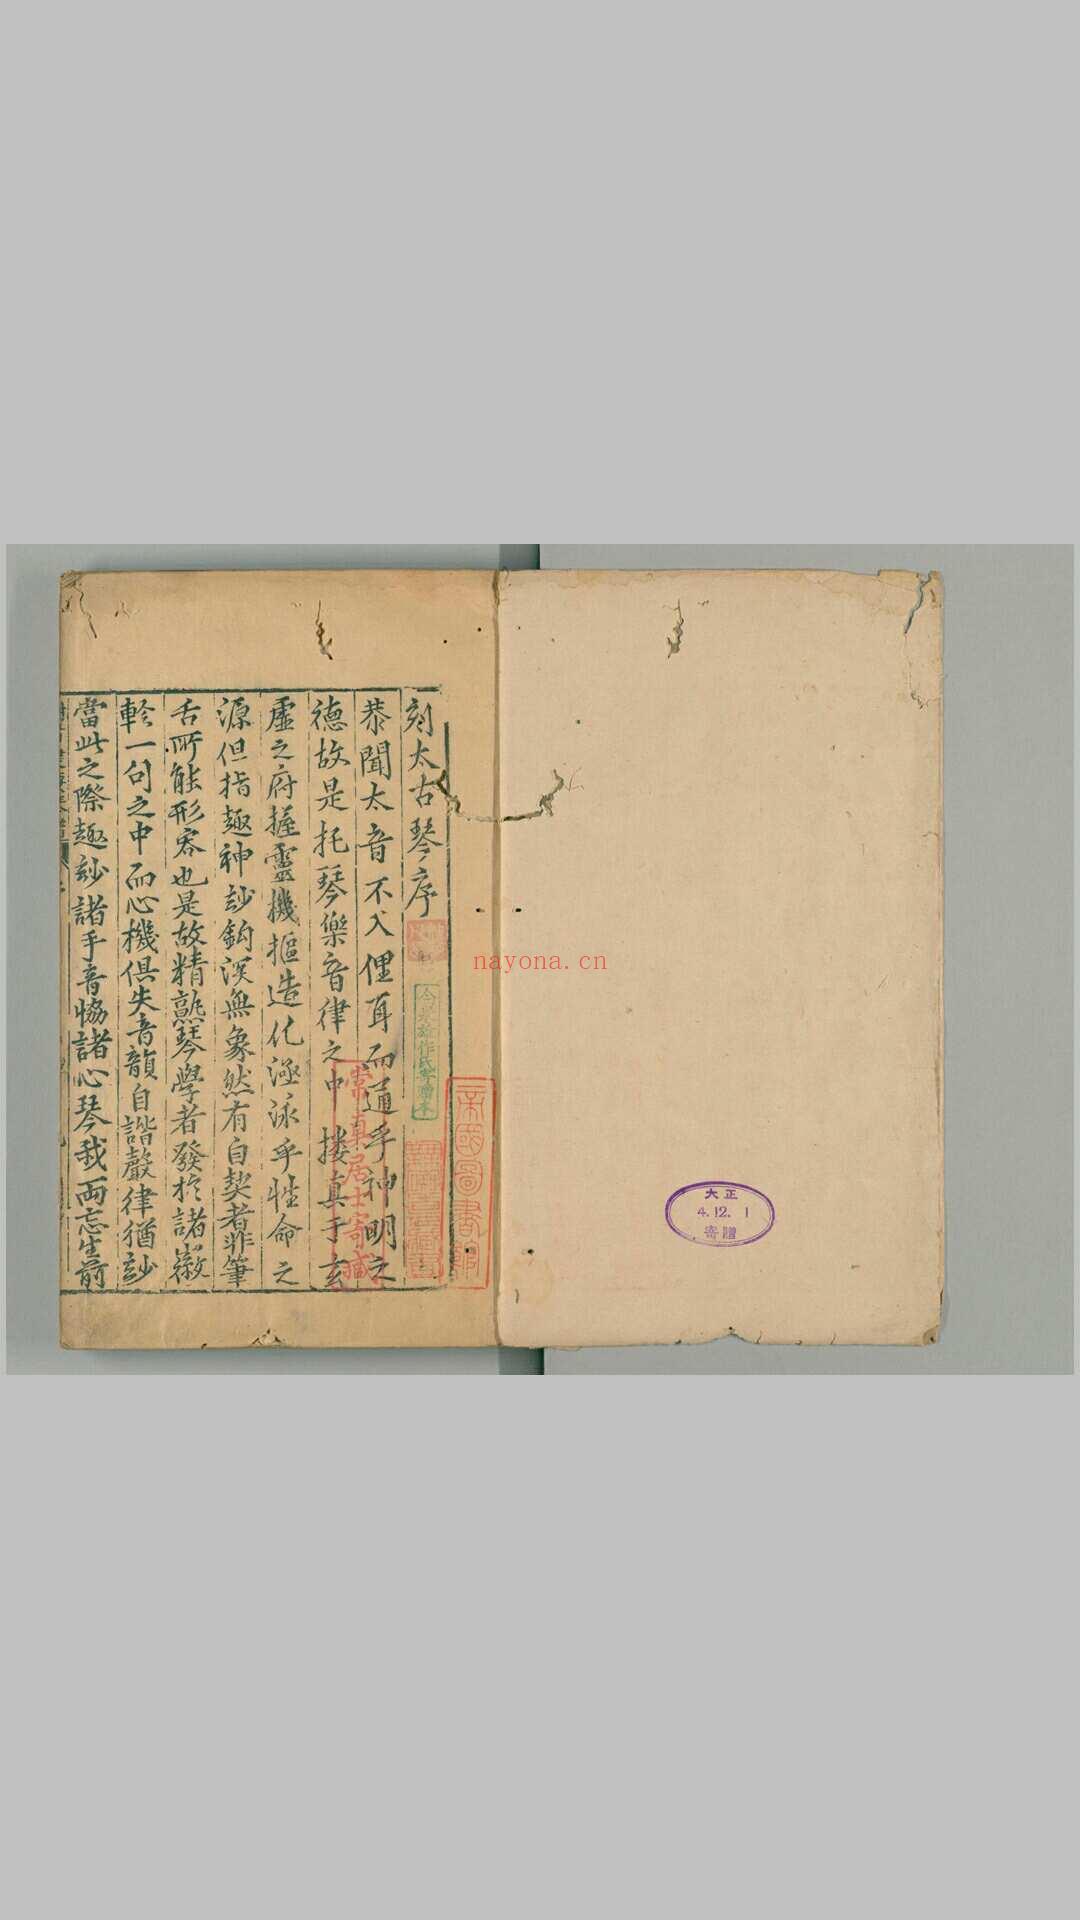 刻太古琴序
恭聞太音不入俚耳而通乎神明之
德故是托琴樂音律之中摟真于玄
虛之府握靈機摳造化㴑泳乎性命之
源但指趣神訬鈎深無象然有自契者非筆
舌所能形容也是故精熟琴學者發於諸徽
軫一句之中而心機俱失音韻自諧聲律猶訬
當此之際趣訬諸手音恊諸心琴我兩忘生前
帝國圖書館
常真居士寄藏
大正
4.12.1
寄贈
nayona.cn